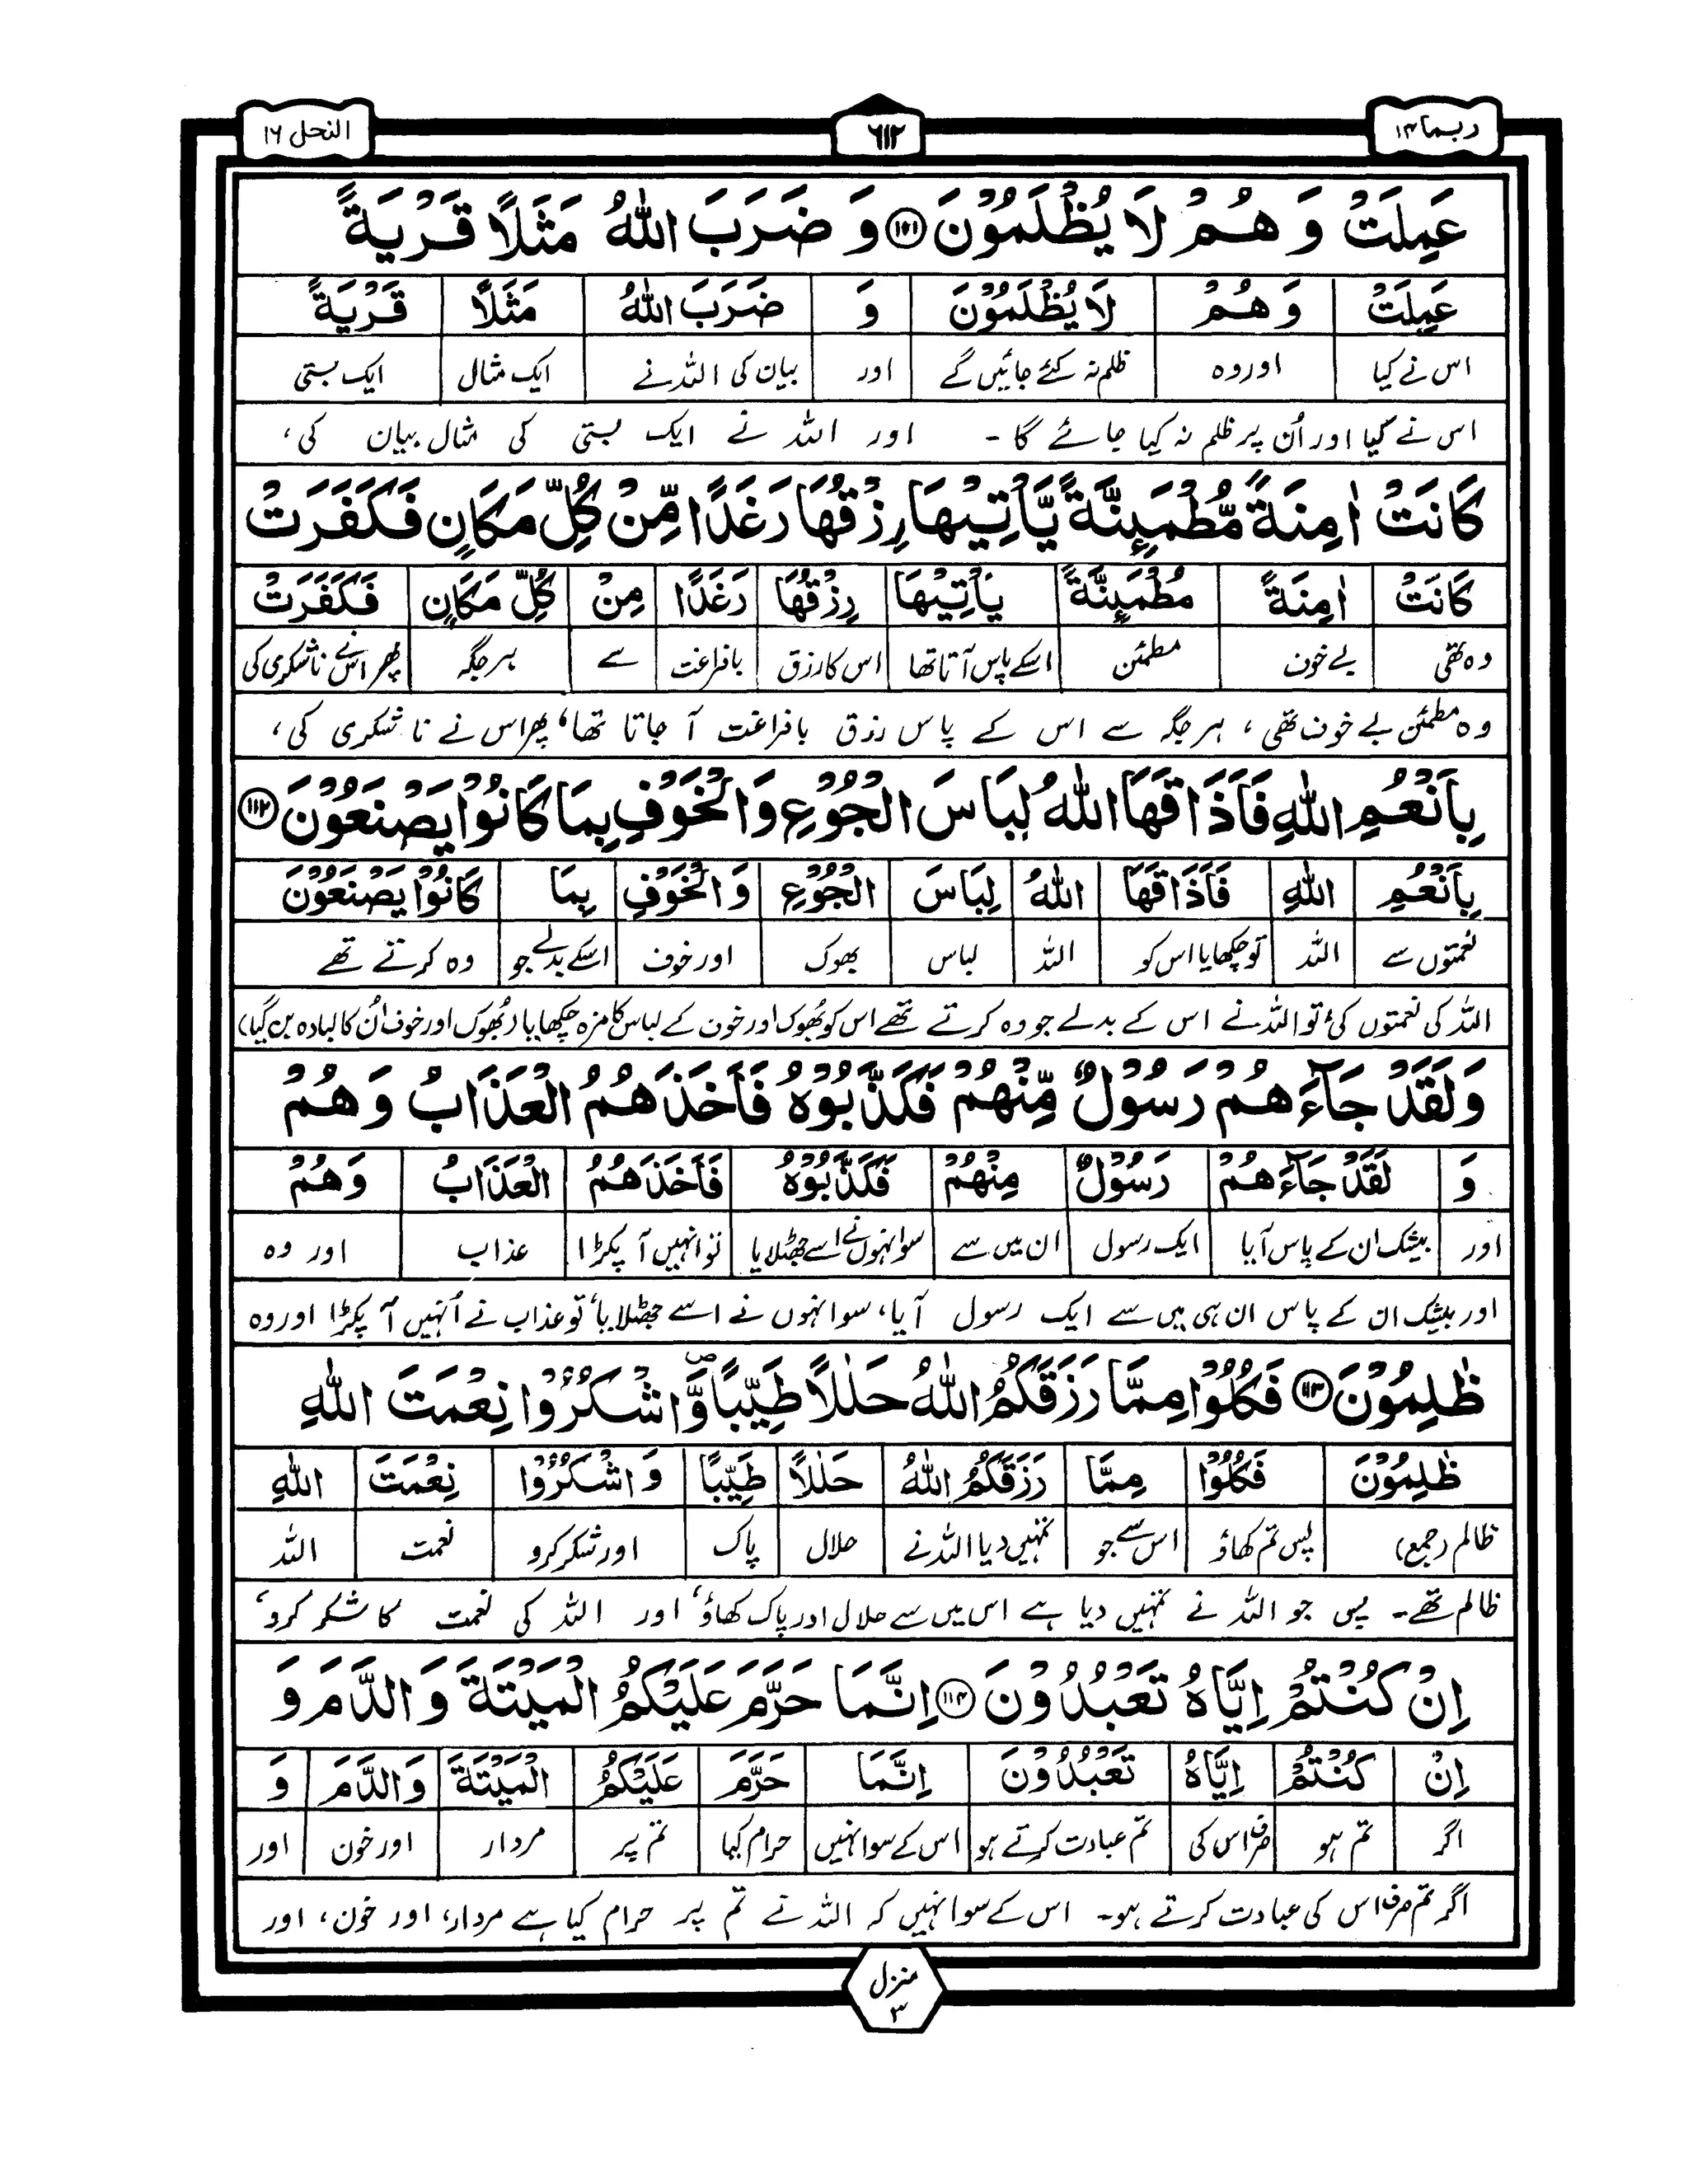 ربما ۱۴
٦١٢
النحل ١٦
عَمِلَتْ وَ هُمْ لَا يُظْلَمُوْنَ ﴿١١١﴾ وَ ضَرَبَ اللّٰهُ مَثَلًا قَرْيَةً
عَمِلَتْ وَ هُمْ لَا يُظْلَمُوْنَ وَ ضَرَبَ اللّٰهُ مَثَلًا قَرْيَةً
اس نے کیا اور وہ ظلم نہ کئے جائیں گے اور بیان کی اللہ نے ایک مثال ایک بستی
اس نے کیا اور اُن پر ظلم نہ کیا جائے گا۔ اور اللہ نے ایک بستی کی مثال بیان کی،
كَانَتْ اٰمِنَةً مُّطْمَىِٕنَّةً يَّاْتِيْهَا رِزْقُهَا رَغَدًا مِّنْ كُلِّ مَكَانٍ فَكَفَرَتْ
كَانَتْ اٰمِنَةً مُطْمَىِٕنَّةً يَاْتِيْهَا رِزْقُهَا رَغَدًا مِنْ كُلِّ مَكَانٍ فَكَفَرَتْ
وہ تھی بے خوف مطمئن اسکے پاس آتا تھا اس کا رزق بافراغت سے ہر جگہ پھر اس نے ناشکری کی
وہ مطمئن بے خوف تھی، ہر جگہ سے اس کے پاس رزق بافراغت آ جاتا تھا، پھر اس نے ناشکری کی،
بِاَنْعُمِ اللّٰهِ فَاَذَاقَهَا اللّٰهُ لِبَاسَ الْجُوْعِ وَالْخَوْفِ بِمَا كَانُوْا يَصْنَعُوْنَ ﴿١١٢﴾
بِاَنْعُمِ اللّٰهِ فَاَذَاقَهَا اللّٰهُ لِبَاسَ الْجُوْعِ وَالْخَوْفِ بِمَا كَانُوْا يَصْنَعُوْنَ
نعمتوں سے اللہ تو چکھایا اس کو اللہ لباس بھوک اور خوف اسکے بدلے جو وہ کرتے تھے
اللہ کی نعمتوں کی، تو اللہ نے اس کے بدلے جو وہ کرتے تھے اس کو بُھوک اور خوف کے لباس کا مزہ چکھایا (بُھوک اور خوف اُن کا لبادہ بن گیا)
وَلَقَدْ جَآءَهُمْ رَسُوْلٌ مِّنْهُمْ فَكَذَّبُوْهُ فَاَخَذَهُمُ الْعَذَابُ وَهُمْ
وَ لَقَدْ جَآءَهُمْ رَسُوْلٌ مِنْهُمْ فَكَذَّبُوْهُ فَاَخَذَهُمُ الْعَذَابُ وَهُمْ
اور بیشک ان کے پاس آیا ایک رسول ان میں سے سو انہوں نے اسے جھٹلایا تو انہیں آ پکڑا عذاب اور وہ
اور بیشک ان کے پاس ان ہی میں سے ایک رسول آیا، سو انہوں نے اسے جھٹلایا، تو عذاب نے اُنہیں آ پکڑا اور وہ
ظٰلِمُوْنَ ﴿١١٣﴾ فَكُلُوْا مِمَّا رَزَقَكُمُ اللّٰهُ حَلٰلًا طَيِّبًا ۪ وَّاشْكُرُوْا نِعْمَتَ اللّٰهِ
ظٰلِمُوْنَ فَكُلُوْا مِمَّا رَزَقَكُمُ اللّٰهُ حَلٰلًا طَيِّبًا وَاشْكُرُوْا نِعْمَتَ اللّٰهِ
ظالم (جمع) پس تم کھاؤ اس سے جو تمہیں دیا اللہ نے حلال پاک اور شکر کرو نعمت اللہ
ظالم تھے۔ پس جو اللہ نے تمہیں دیا ہے اس میں سے حلال اور پاک کھاؤ، اور اللہ کی نعمت کا شکر کرو،
اِنْ كُنْتُمْ اِيَّاهُ تَعْبُدُوْنَ ﴿١١٤﴾ اِنَّمَا حَرَّمَ عَلَيْكُمُ الْمَيْتَةَ وَ الدَّمَ وَ
اِنْ كُنْتُمْ اِيَّاهُ تَعْبُدُوْنَ اِنَّمَا حَرَّمَ عَلَيْكُمُ الْمَيْتَةَ وَالدَّمَ وَ
اگر تم ہو صرف اس کی تم عبادت کرتے ہو اس کے سوا نہیں حرام کیا تم پر مردار اور خون اور
اگر تم صرف اس کی عبادت کرتے ہو۔ اس کے سوا نہیں کہ اللہ نے تم پر حرام کیا ہے مردار، اور خون، اور
منزل
۳